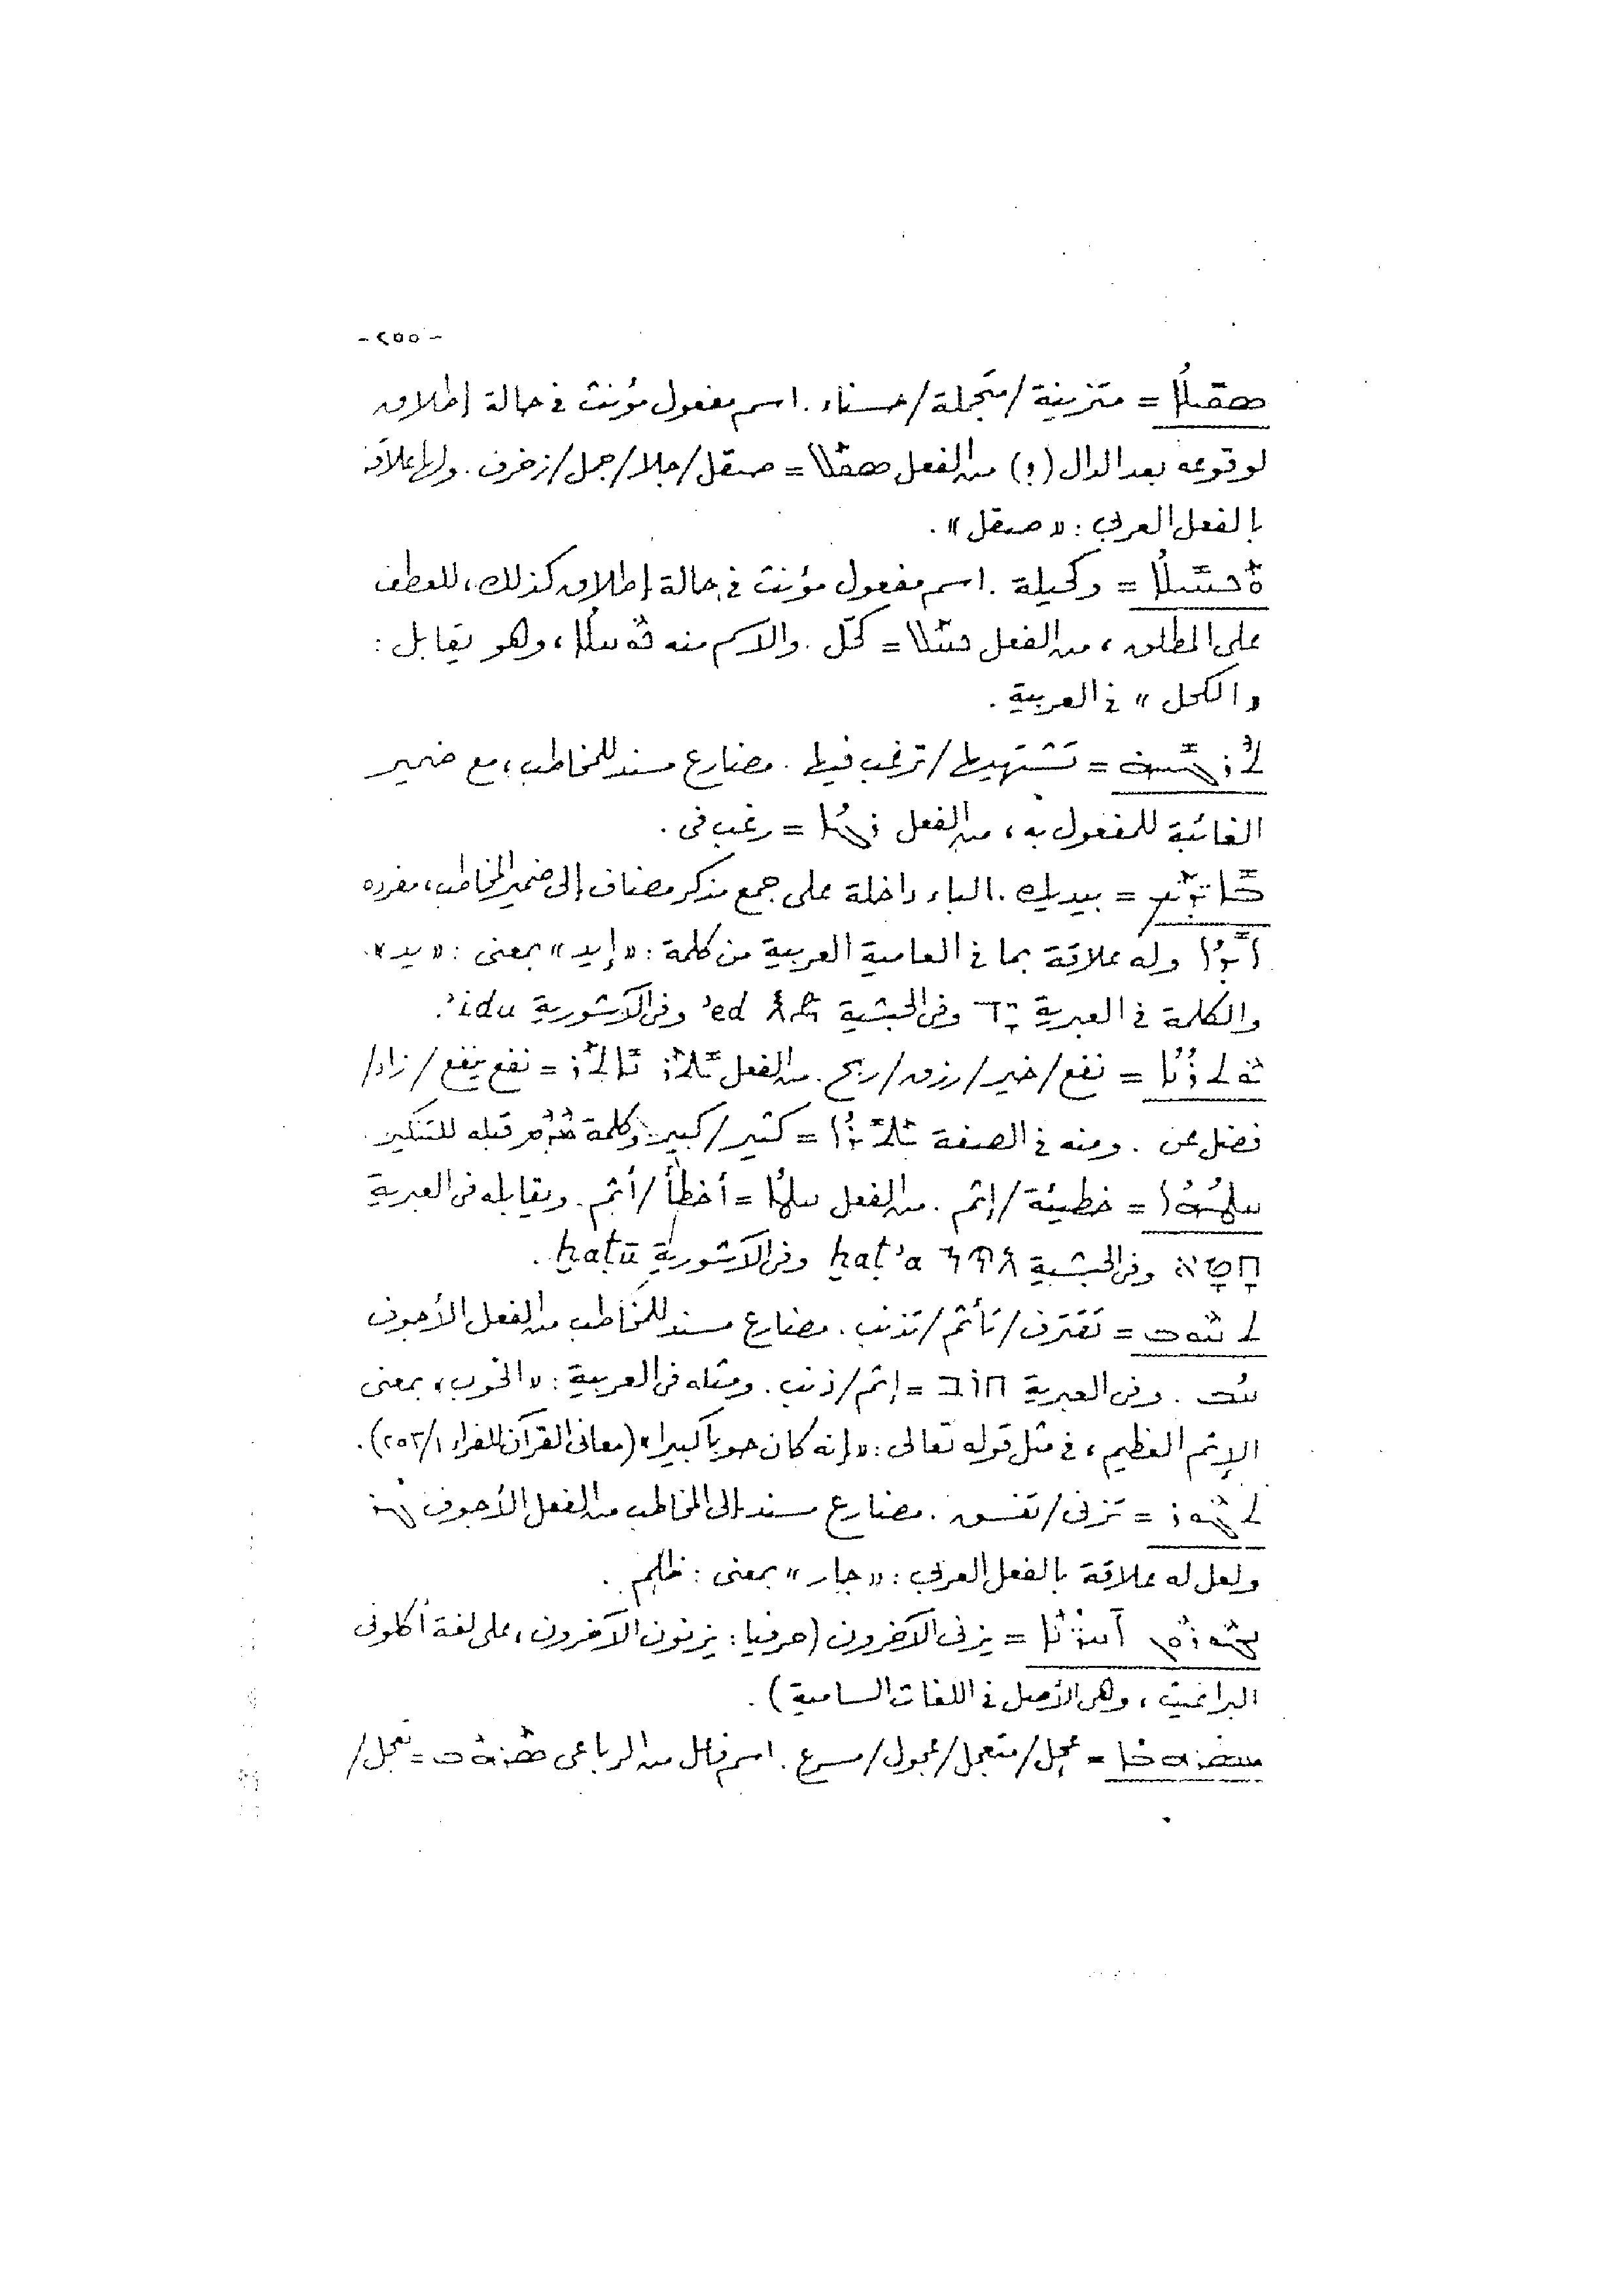 - ٢٥٥ -
ܡܨܩܠܐ = متزينة/متجملة/حسناء. اسم مفعول مؤنث في حالة إطلاق
لوقوعه بعد الدال (ܕ) من الفعل = صقل/جلا/جمل/زخرف. ولها علاقة
بالفعل العربي: «صقل».
= وكحيلة. اسم مفعول مؤنث في حالة إطلاق كذلك، للعطف
على المطلق، من الفعل ܟܚܠ = كحّل. والاسم منه ܟܘܚܠܐ، وهو يقابل:
«الكحل» في العربية.
ܬܪܓܝܗ = تشتهيها/ترغب فيها. مضارع مسند للمخاطب، مع ضمير
الغائبة للمفعول به، من الفعل ܪܓܐ = رغب في.
ܒܐܝܕܝܟ = بيديك. الباء داخلة على جمع مذكر مضاف إلى ضمير المخاطب، مفرده
ܐܝܕܐ وله علاقة بما في العامية العربية من كلمة: «إيد» بمعنى: «يد».
والكلمة في العبرية יָד وفي الحبشية እድ ʾed وفي الآشورية idu ʾ.
ܝܘܬܪܢܐ = نفع/خير/رزق/ربح. من الفعل ܝܬܪ ܢܐܬܪ = نفع ينفع/زاد/
فضل عن. ومنه في الصفة ܝܬܝܪܐ = كثير/كبير وكلمة ܡܕܡ قبله للتنكير.
ܚܛܗܐ = خطيئة/إثم. من الفعل ܚܛܐ = أخطأ/أثم. ويقابله في العبرية
חָטָא وفي الحبشية ḫaṭʾa وفي الآشورية ḫaṭū.
ܬܚܘܒ = تقترف/تأثم/تذنب. مضارع مسند للمخاطب من الفعل الأجوف
ܚܒ. وفي العبرية חוֹב = إثم/ذنب. ومثله في العربية: «الحوب» بمعنى
الإثم العظيم، في مثل قوله تعالى: «إنه كان حوبا كبيرا» (معاني القرآن للفراء ٢٥٣/١).
ܬܓܘܪ = تزني/تفسق. مضارع مسند إلى المخاطب من الفعل الأجوف ܓܪ
ولعل له علاقة بالفعل العربي: «جار» بمعنى: ظلم.
ܢܓܘܪܘܢ ܐܚܪܢܐ = يزني الآخرون (حرفيا: يزنون الآخرون، على لغة أكلوني
البراغيث، وهي الأصل في اللغات السامية).
ܡܣܪܗܒܐ = عجل/متعجل/عجول/مسرع. اسم فاعل من الرباعي ܣܪܗܒ = تعجل/